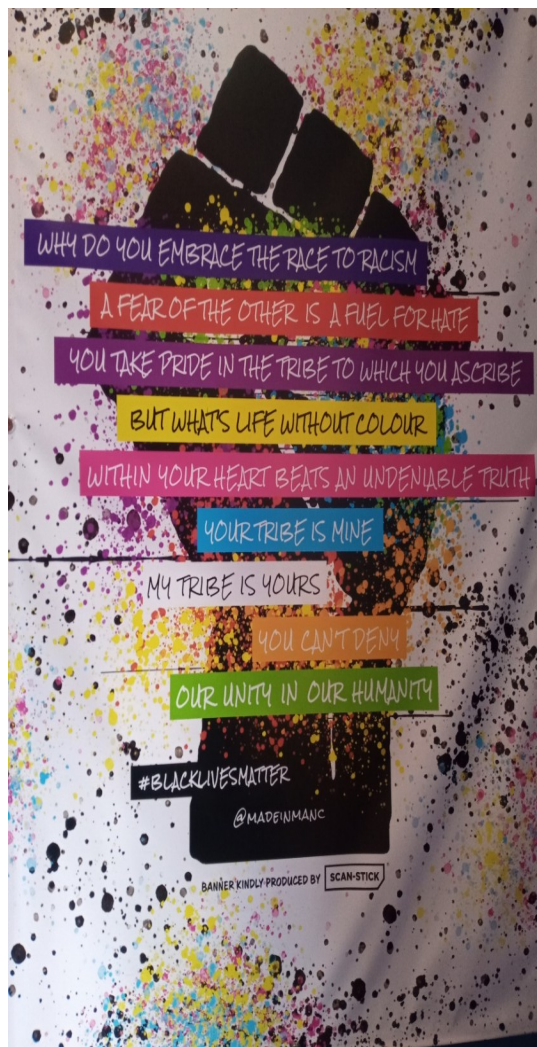 WHY DO YOU EMBRACE THE RACE TO RACISM
A FEAR OF THE OTHER IS A FUEL FOR HATE
YOU TAKE PRIDE IN THE TRIBE TO WHICH YOU ASCRIBE
BUT WHAT'S LIFE WITHOUT COLOUR
WITHIN YOUR HEART BEATS AN UNDENIABLE TRUTH
YOUR TRIBE IS MINE
MY TRIBE IS YOURS
YOU CAN'T DENY
OUR UNITY IN OUR HUMANITY
#BLACKLIVESMATTER
@MADEINMANC
BANNER KINDLY PRODUCED BY SCAN-STICK